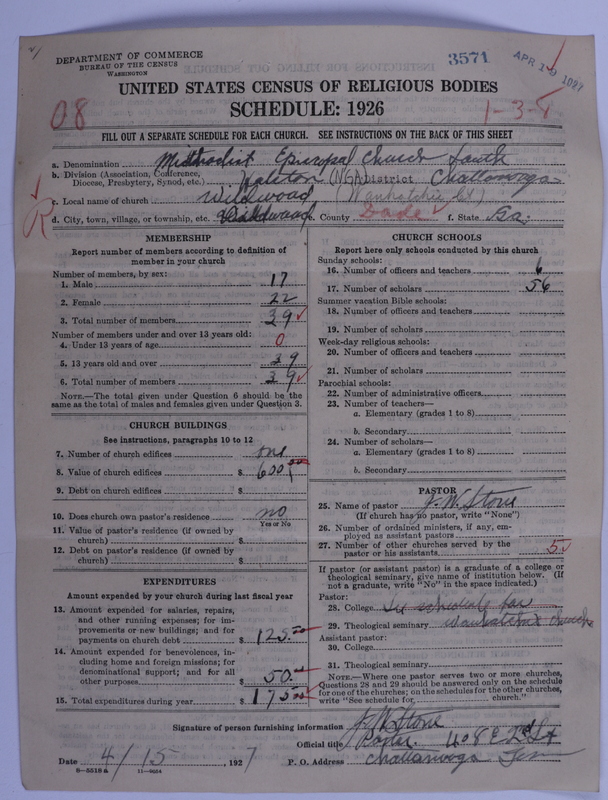 DEPARTMENT OF COMMERCE
BUREAU OF THE CENSUS
WASHINGTON
3571
APR 19 1927
UNITED STATES CENSUS OF RELIGIOUS BODIES
SCHEDULE: 1926
08
1-3-8
FILL OUT A SEPARATE SCHEDULE FOR EACH CHURCH. SEE INSTRUCTIONS ON THE BACK OF THIS SHEET
a. Denomination Methodist Episcopal Church South
b. Division (Association, Conference, Diocese, Presbytery, Synod, etc.) (N GA) District Chattanooga
c. Local name of church Wildwood (Wauhatchie Ct)
d. City, town, village, or township, etc. Wildwood e. County Dade f. State Ga.
MEMBERSHIP
Report number of members according to definition of member in your church
Number of members, by sex:
1. Male 17
2. Female 22
3. Total number of members 39
Number of members under and over 13 years old:
4. Under 13 years of age 0
5. 13 years old and over 39
6. Total number of members 39
NOTE.—The total given under Question 6 should be the same as the total of males and females given under Question 3.
CHURCH BUILDINGS
See instructions, paragraphs 10 to 12
7. Number of church edifices one
8. Value of church edifices $ 600.00
9. Debt on church edifices $
10. Does church own pastor's residence no
Yes or No
11. Value of pastor's residence (if owned by church) $
12. Debt on pastor's residence (if owned by church) $
EXPENDITURES
Amount expended by your church during last fiscal year
13. Amount expended for salaries, repairs, and other running expenses; for improvements or new buildings; and for payments on church debt $ 125.00
14. Amount expended for benevolences, including home and foreign missions; for denominational support; and for all other purposes $ 50.00
15. Total expenditures during year $ 175.00
CHURCH SCHOOLS
Report here only schools conducted by this church
Sunday schools:
16. Number of officers and teachers 6
17. Number of scholars 56
Summer vacation Bible schools:
18. Number of officers and teachers
19. Number of scholars
Week-day religious schools:
20. Number of officers and teachers
21. Number of scholars
Parochial schools:
22. Number of administrative officers
23. Number of teachers—
a. Elementary (grades 1 to 8)
b. Secondary
24. Number of scholars—
a. Elementary (grades 1 to 8)
b. Secondary
PASTOR
25. Name of pastor J. W. Stone
(If church has no pastor, write "None")
26. Number of ordained ministers, if any, employed as assistant pastors
27. Number of other churches served by the pastor or his assistants 5
If pastor (or assistant pastor) is a graduate of a college or theological seminary, give name of institution below. (If not a graduate, write "No" in the space indicated.)
Pastor:
28. College See schedule for
29. Theological seminary Wauhatchie church
Assistant pastor:
30. College
31. Theological seminary
NOTE.—Where one pastor serves two or more churches, Questions 28 and 29 should be answered only on the schedule for one of the churches; on the schedules for the other churches, write "See schedule for church."
Signature of person furnishing information J. W. Stone
Official title Pastor. 408 E
Date 4/15, 1927 P. O. Address Chattanooga Tenn
8—5518 a 11—9064